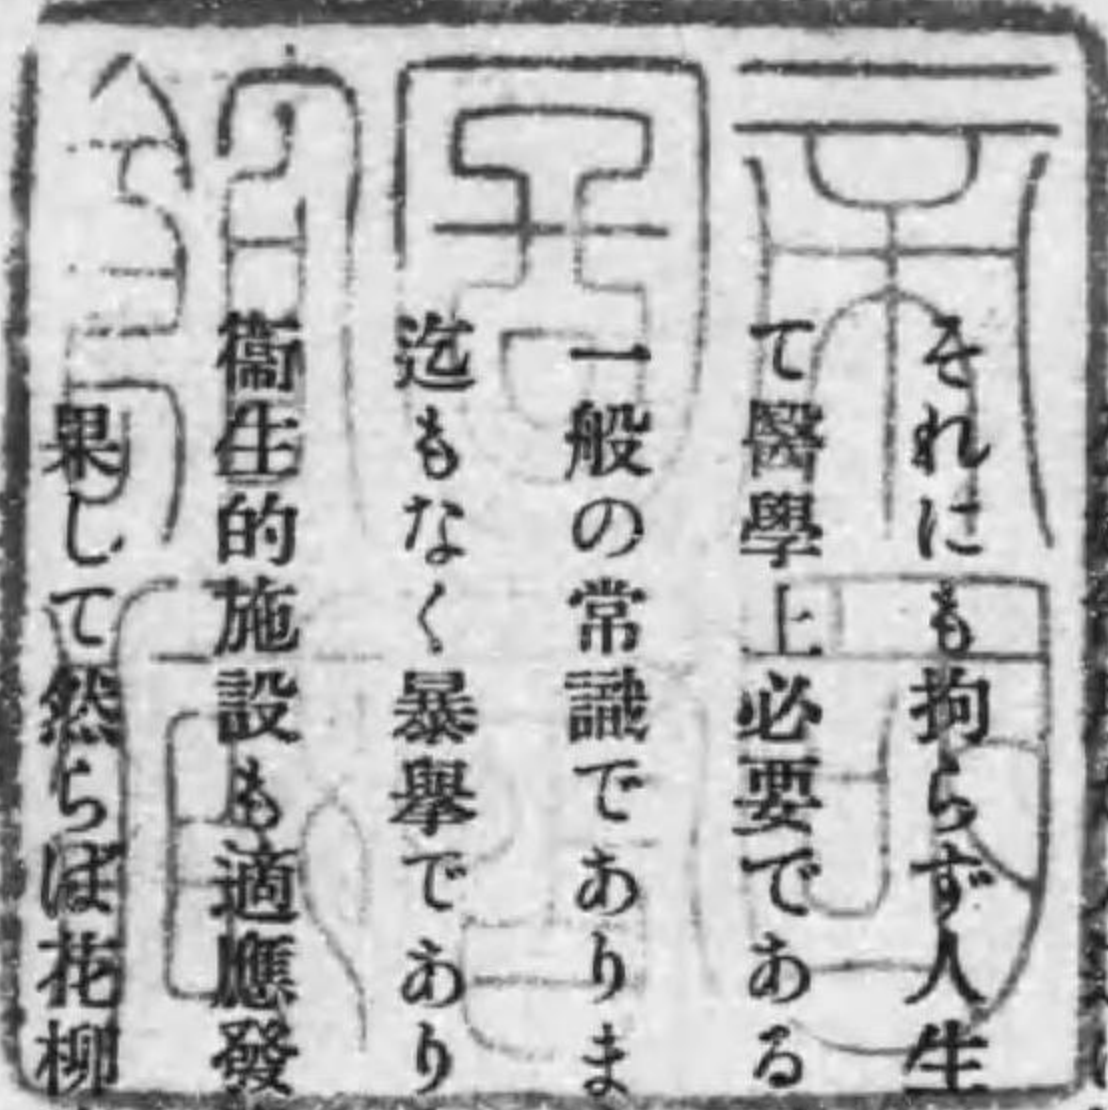 それにも拘らず人生
て醫學上必要である
一般の常識でありま
迄もなく暴擧であり
衞生的施設も適應發
果して然らば花柳